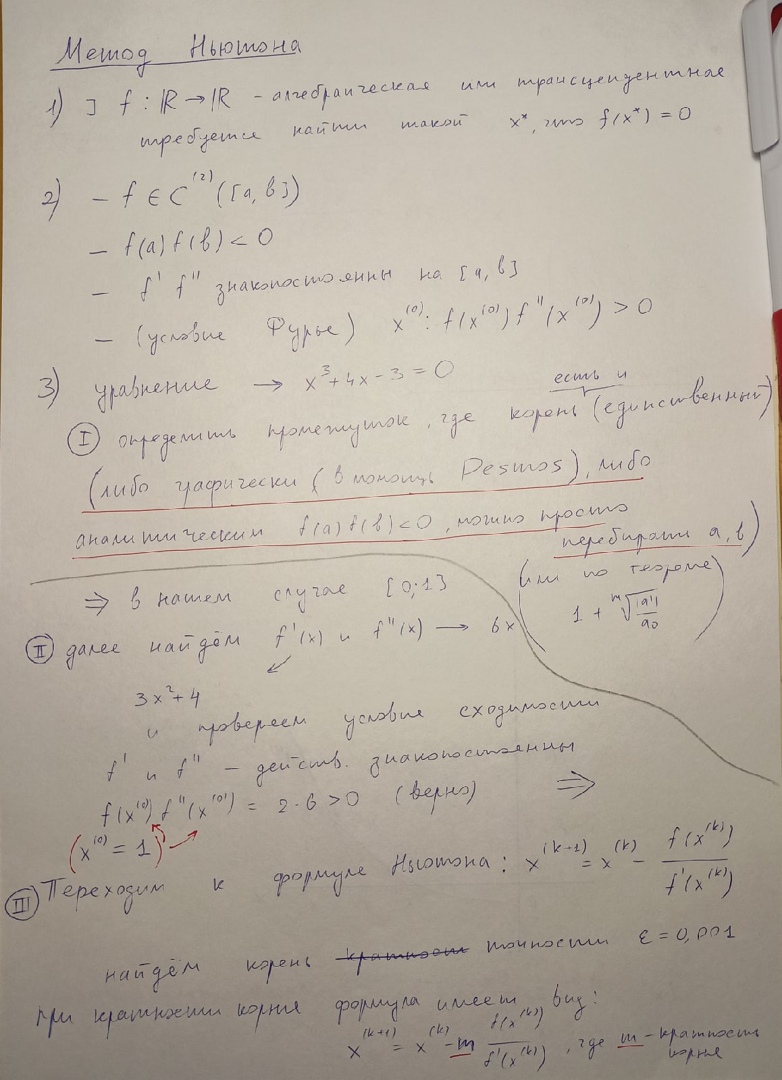 Метод Ньютона
1) ] f : ℝ → ℝ - алгебраическая или трансцендентное
требуется найти такой x*, что f(x*) = 0
2) – f ∈ C⁽²⁾([a, b])
– f(a) f(b) < 0
– f' f'' знакопостоянны на [a, b]
– (условие Фурье) x⁽⁰⁾: f(x⁽⁰⁾) f''(x⁽⁰⁾) > 0
3) уравнение → x³ + 4x - 3 = 0
есть и
I определить промежуток, где корень (единственный)
(либо графически (в помощь Desmos), либо
аналитическим f(a) f(b) < 0, можно просто
перебирать a, b)
⇒ в нашем случае [0; 1]
(или по теореме
1 + ᵐ√(|a'|/a₀))
II далее найдём f'(x) и f''(x) → 6x
3x² + 4
и проверяем условие сходимости
f' и f'' – действ. знакопостоянны
f(x⁽⁰⁾) f''(x⁽⁰⁾) = 2·6 > 0 (верно) ⇒
(x⁽⁰⁾ = 1)
III Переходим к формуле Ньютона: x⁽ᵏ⁺¹⁾ = x⁽ᵏ⁾ - f(x⁽ᵏ⁾)/f'(x⁽ᵏ⁾)
найдём корень кратност точности ε = 0,001
при кратности корня формула имеет вид:
x⁽ᵏ⁺¹⁾ = x⁽ᵏ⁾ - m f(x⁽ᵏ⁾)/f'(x⁽ᵏ⁾), где m - кратность
корня